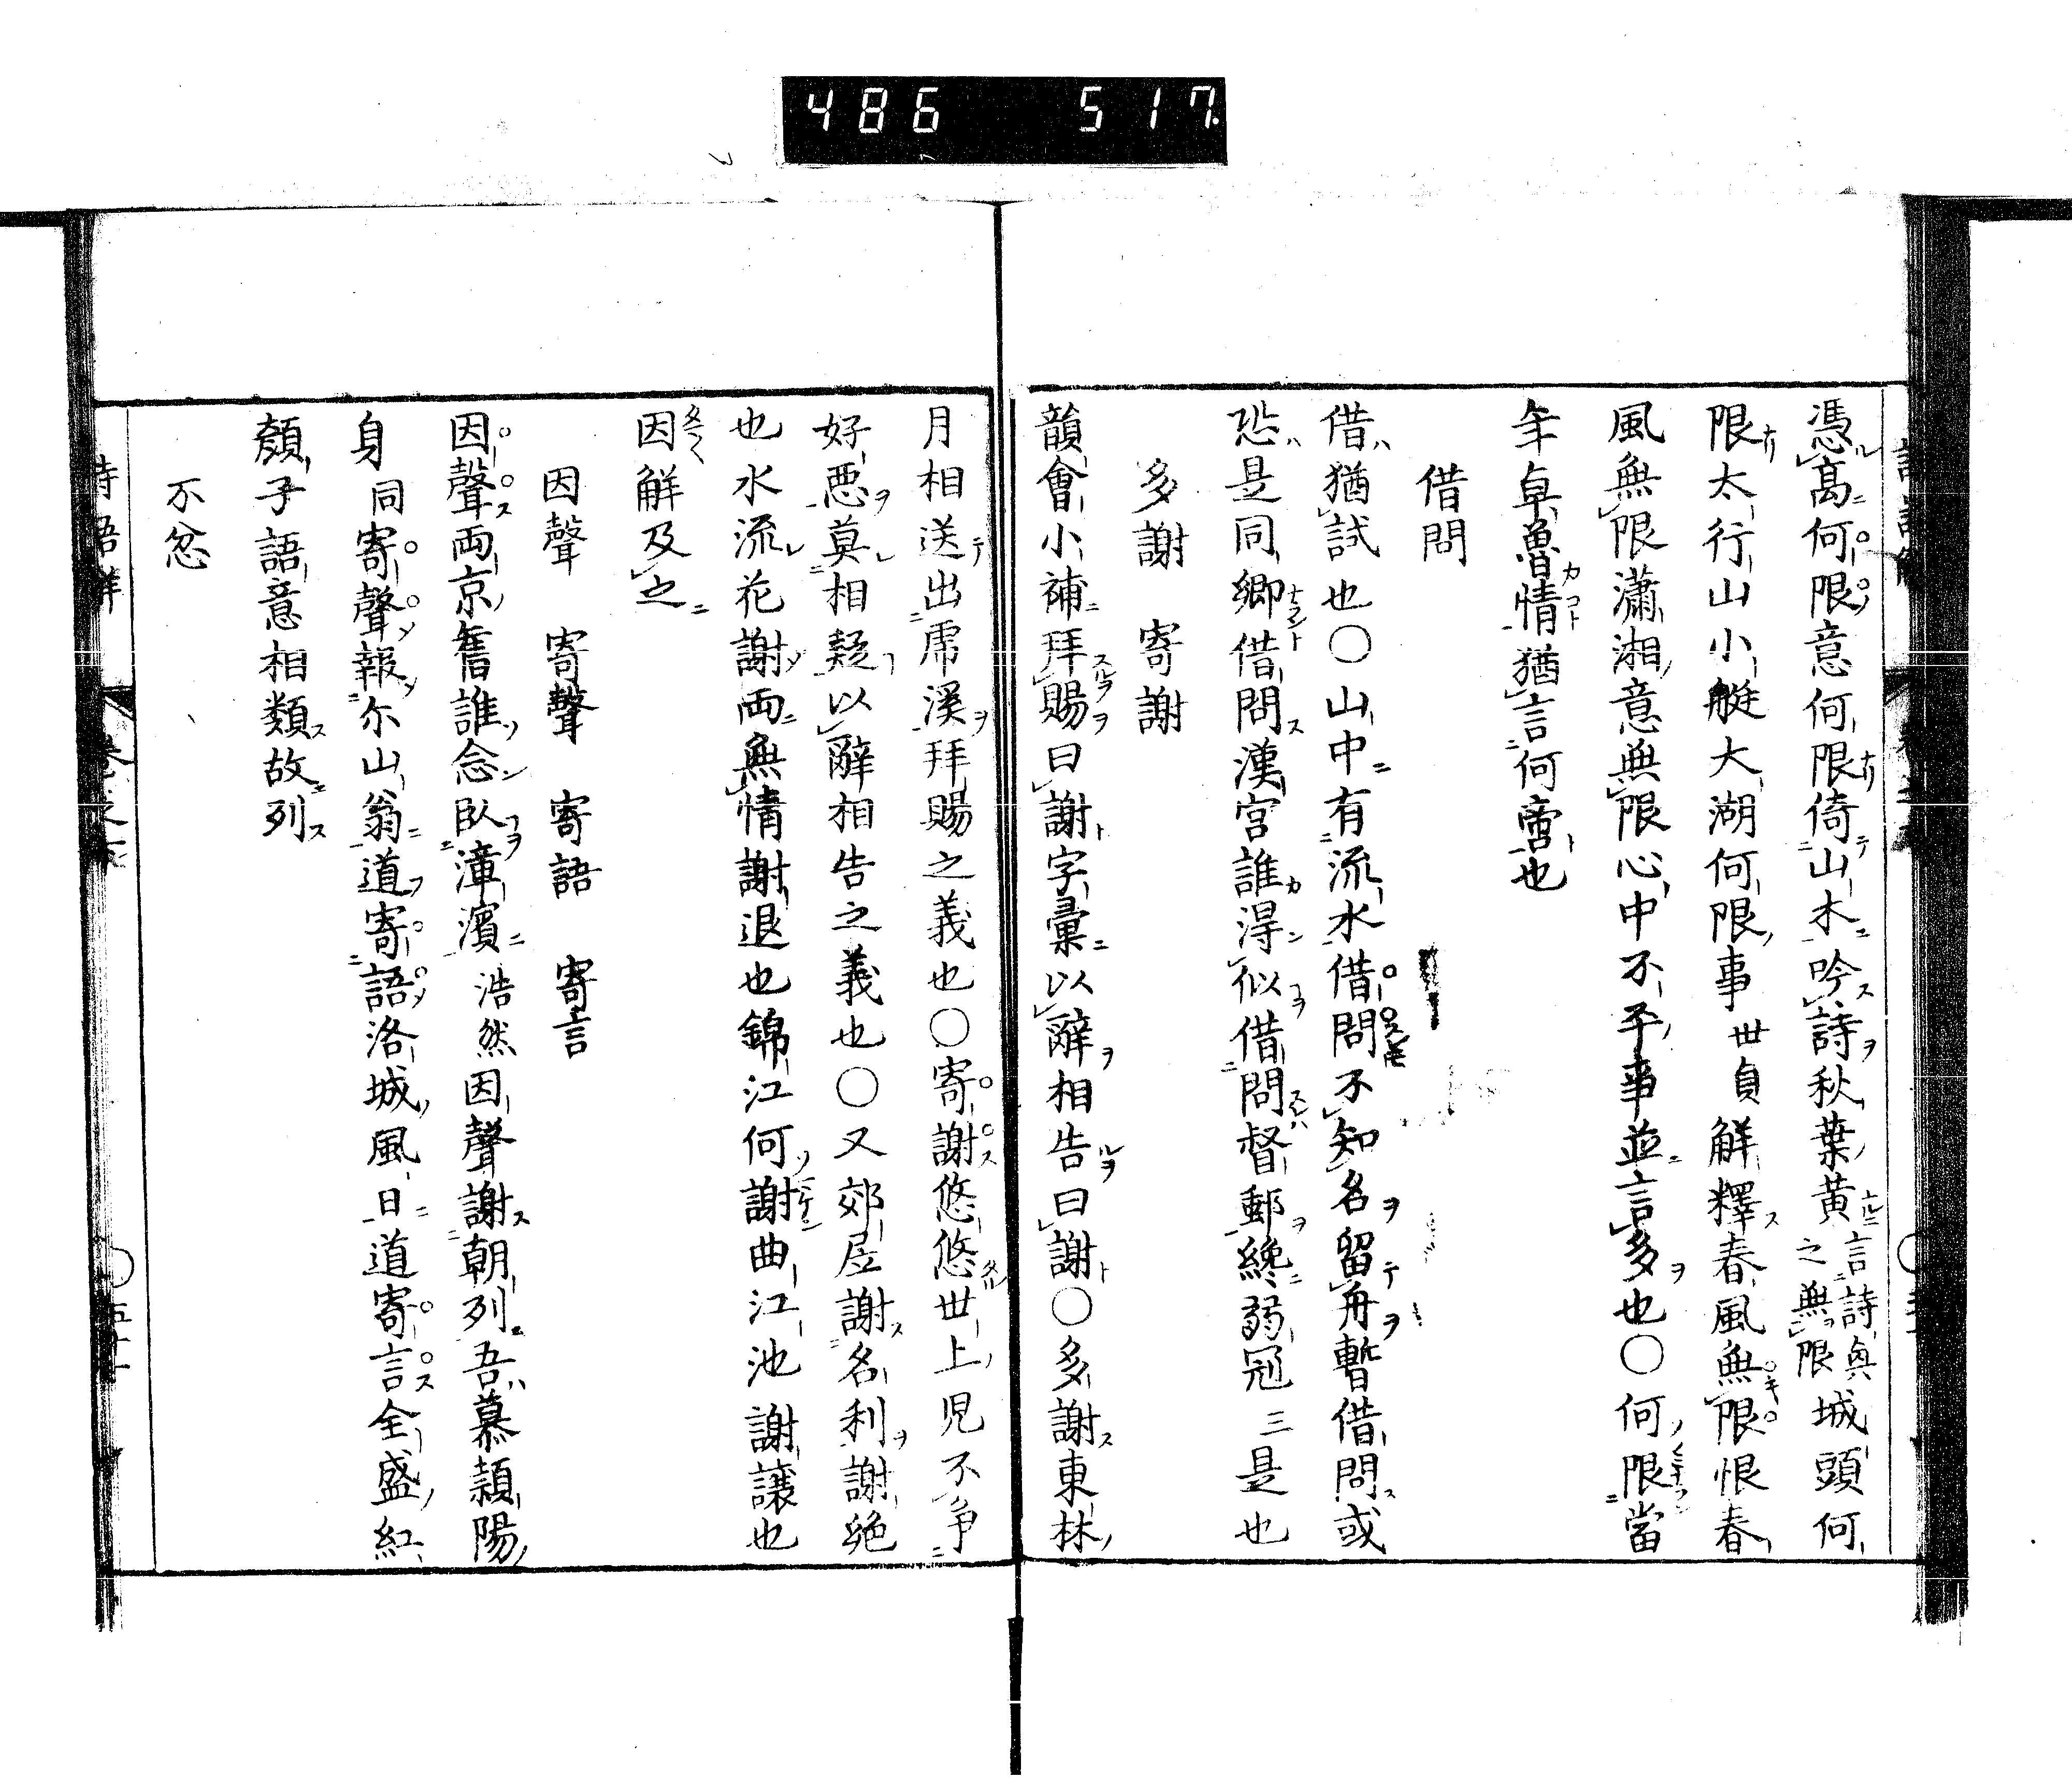 486 517
憑高何限意何限倚山木吟詩秋葉黄言詩興之無限城頭何
限太行山小艇大湖何限事世貞解釋春風無限恨春
風無限瀟湘意無限心中不平事並言多也〇何限當
年卓魯情猶言何啻也
借問
借猶試也〇山中有流水借問不知名留舟暫借問或
恐是同郷借問漢宮誰得似借問督郵纔弱冠三是也
多謝 寄謝
韻會小補拜賜曰謝字彙以辭相告曰謝〇多謝東林
月相送出虎溪拜賜之義也〇寄謝悠悠世上児不争
好悪莫相疑以辭相告之義也〇又郊居謝名利謝絶
也水流花謝両無情謝退也錦江何謝曲江池謝讓也
因解及之
因聲 寄聲 寄語 寄言
因聲両京舊誰念臥漳濱浩然因聲謝朝列吾慕潁陽
身同寄聲報尓山翁道寄語洛城風日道寄言全盛紅
顔子語意相類故列
不忿
詩語解 巻之下 〇五十一